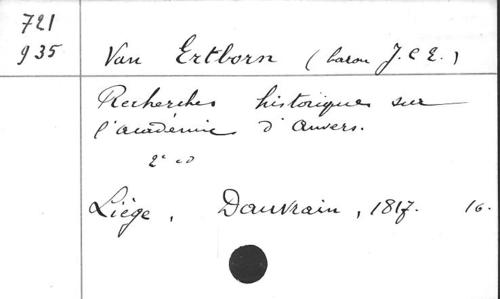 721
935
Van Ertborn (baron J. C E.)
Recherches historiques sur
l'académie d'Anvers.
2e ed
Liège, Dauvrain, 1817. 16.